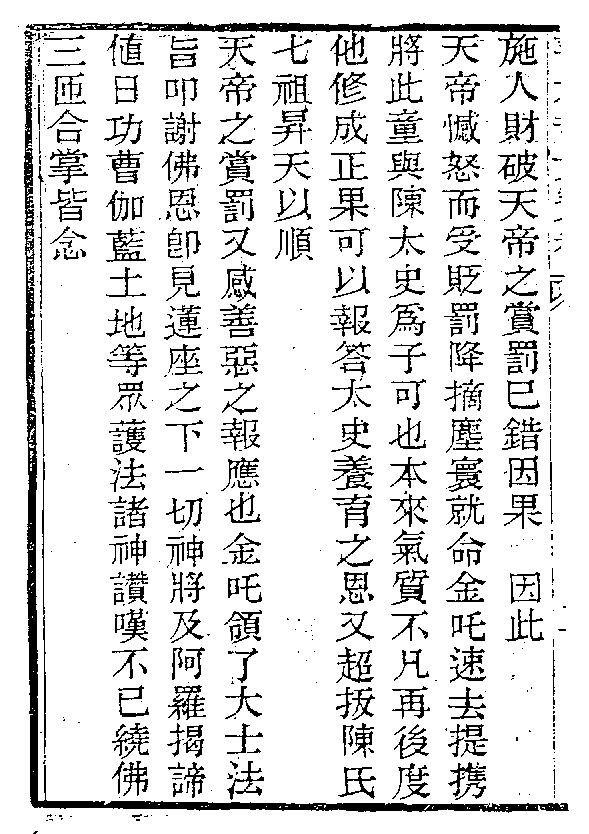 施人財破天帝之賞罰已錯因果　因此
天帝憾怒而受貶罰降摘塵寰就命金吒速去提携
將此童與陳太史爲子可也本來氣質不凡再後度
他修成正果可以報答太史養育之恩又超拔陳氏
七祖昇天以順
天帝之賞罰又感善惡之報應也金吒領了大士法
旨叩謝佛恩卽見蓮座之下一切神將及阿羅揭諦
値日功曹伽藍土地等眾護法諸神讚嘆不已繞佛
三匝合掌皆念